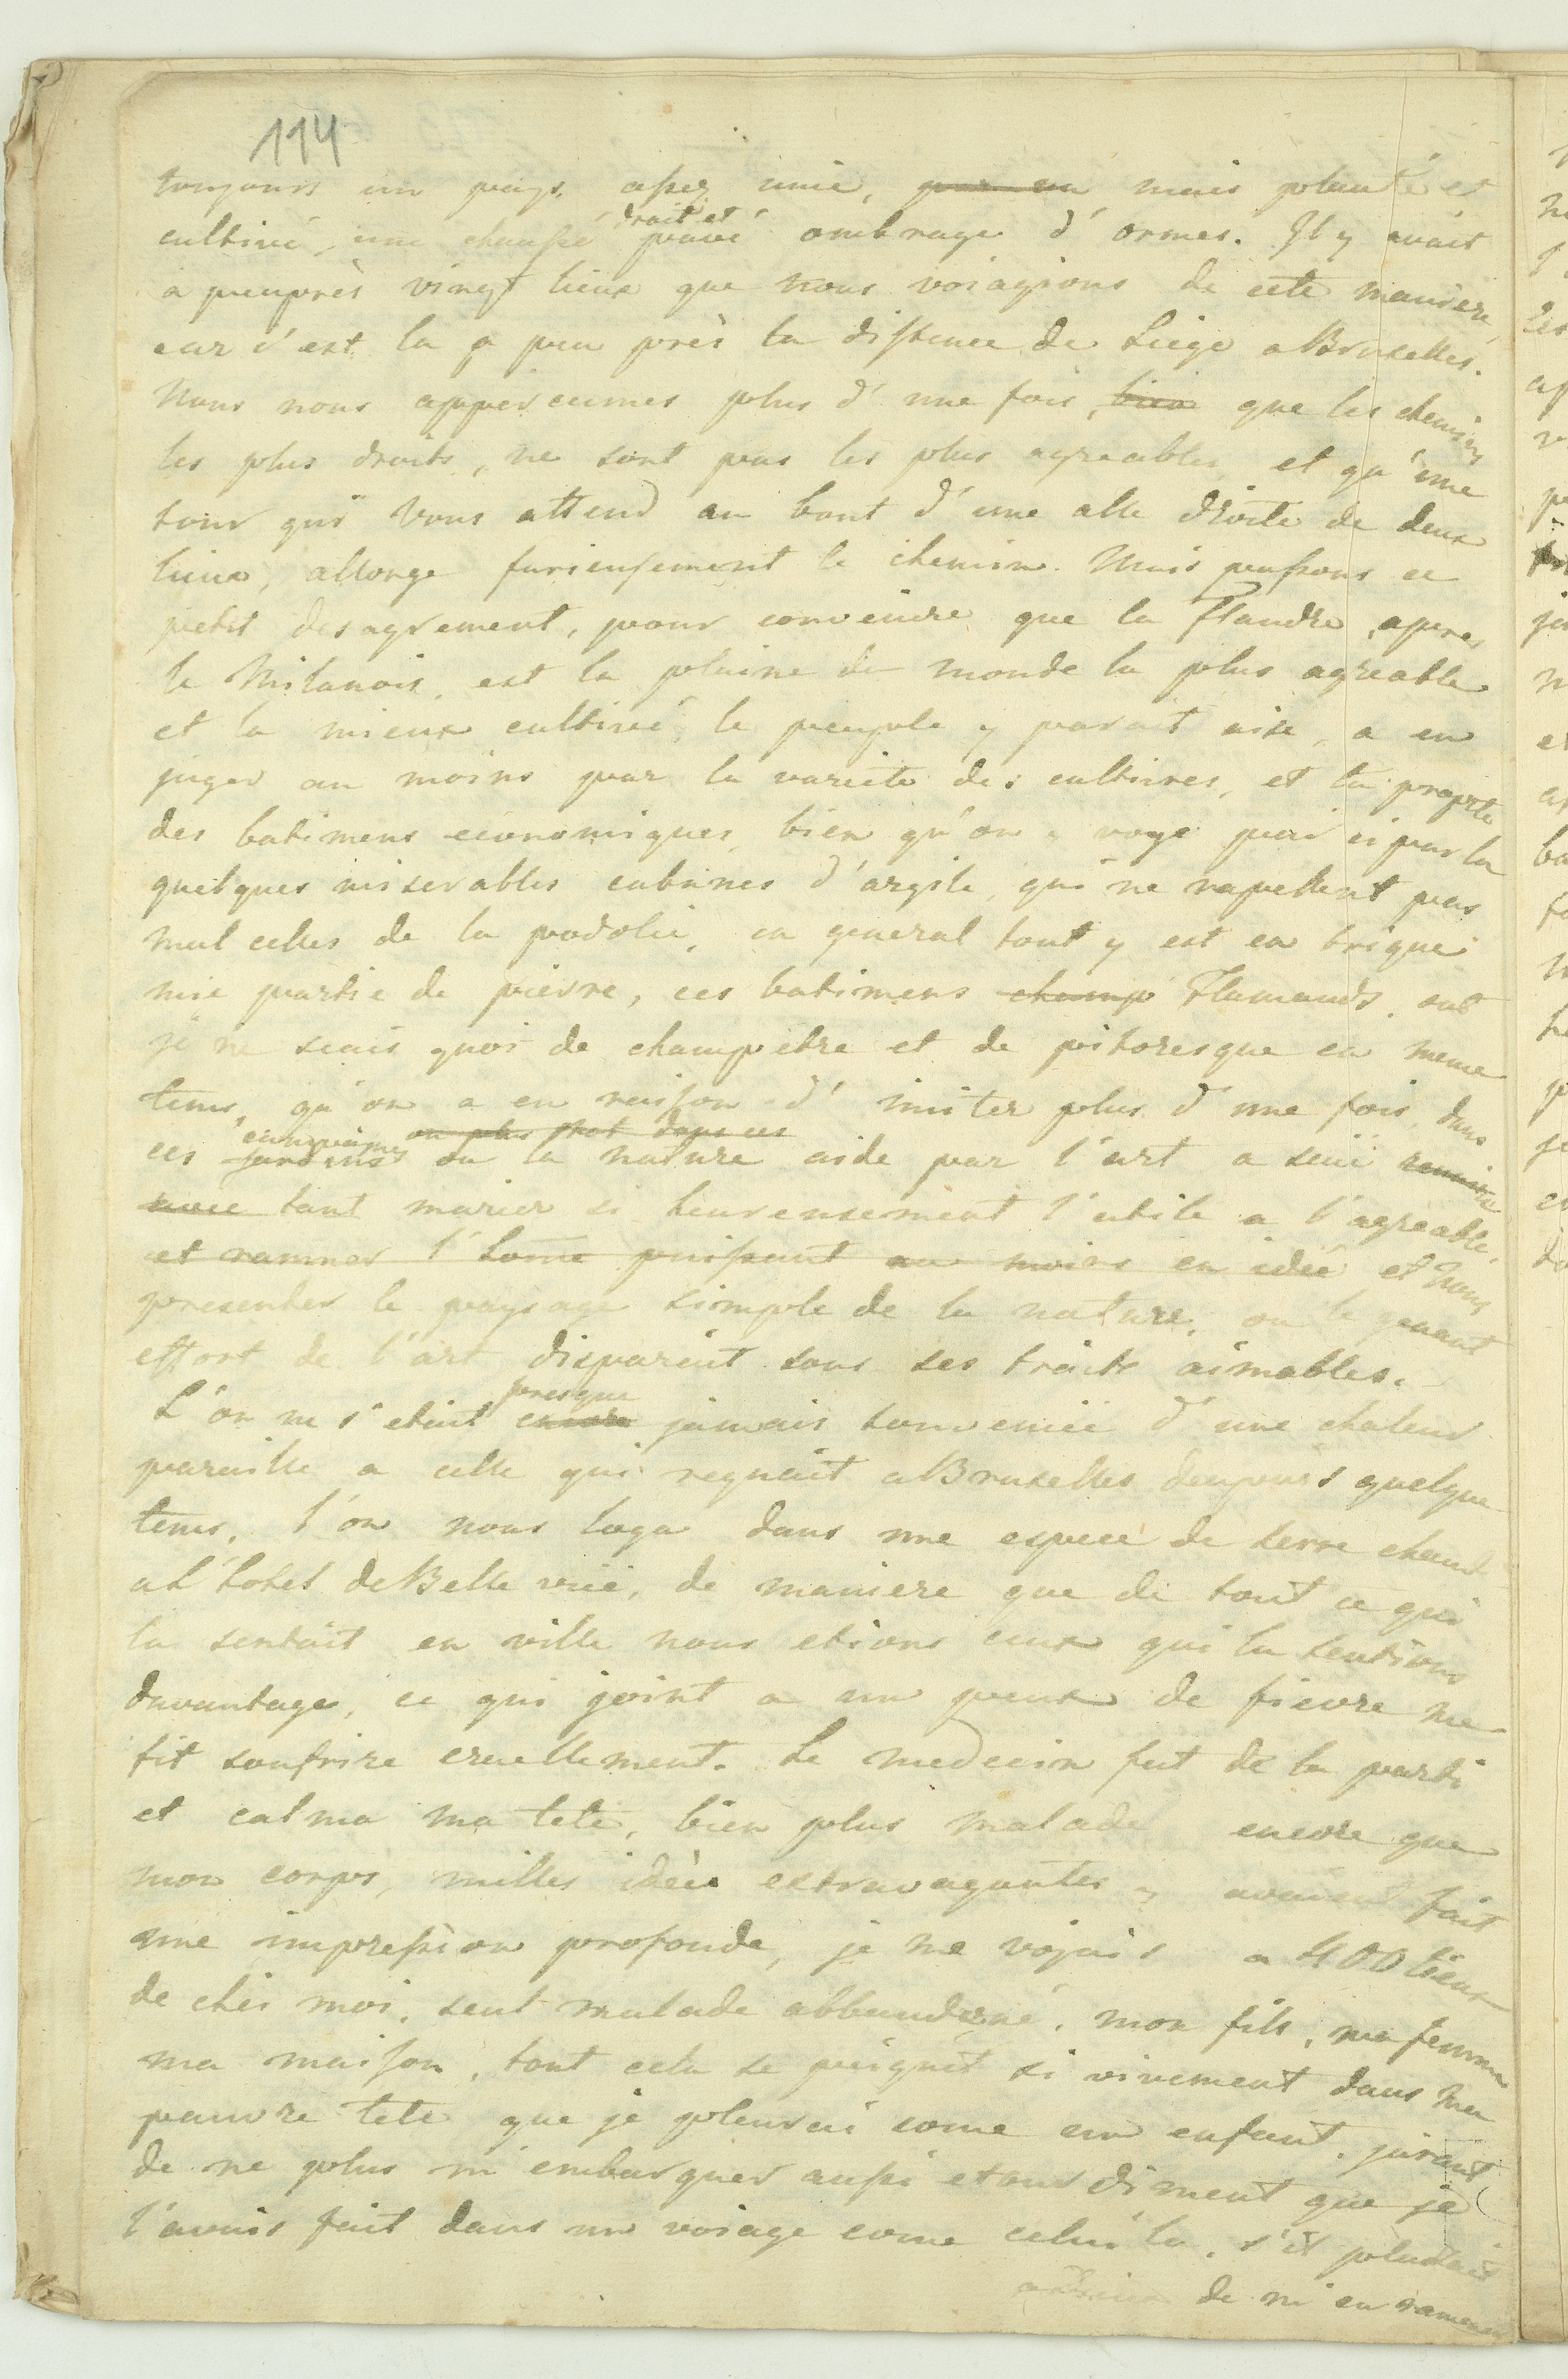 114
toujours un pays, assez unie, mais planté et
cultivé, une chaussé droit et pavé ombragé d'ormes. Il y avait
a peuprès vingt lieux que nous voiagions de cete maniere,
car c'est la a peu près la distence de Liege a Bruxelles.
Nous nous apperceumes plus d'une fois, bien que les chemins
les plus droits, ne sont pas les plus agreables, et qu'une
tour qui vous attend au bout d'une alle droite de deux
lieux, allonge furieusement le chemin. Mais passons ce
petit desagrement, pour convenire que la Flandre, apres
le Milanois, est la plaine du monde la plus agreable
et la mieux cultivé, le peuple y parait aise, a en
juger au moins par la varieté des cultures, et la propreté
des batimens economiques, bien qu'on y voye par ci par la
quelques miserables cabanes d'argile, qui ne rapellent pas
mal celles de la podolie, en general tout y est en brique
mie partie de pierre, ces batimens champ Flamands, ont
je ne scais quoi de champetre et de pitoresque en meme
tems, qu'on a eu raison d'imiter plus d'une fois, dans
ces jardins campagnes ou plus stot dans ces ou la nature aidé par l'art a seuë
tant marier si heureusement l'utile a l'agreable,
et ramner l'home puissant au moins en idée et nous
presenter le paysage simple de la nature, ou le genant
effort de l'art disparait sous ses traits aimables.
L'on ne s'etait encore presque jamais souvenië d'une chaleur
pareille a celle qui regnait a Bruxelles depuis quelque
tems, l'on nous loga dans une espece de serre chaude
a l'hotel de Belle vuë, de maniere que de tout ce qui
la sentait en ville nous etions ceux qui la sentions
davantage, ce qui joint a un peux de fievre me
fit soufrire cruellement. Le medecin fut de la parti
et calma ma tete, bien plus malade encore que
mon corps, milles idées extravagantes y avaient fait
une impression profonde, je me vojais a 400 lieux
de chés moi, seul malade abbandonné, mon fils, ma femme
ma maison, tout cela se peignit si vivement dans ma
pauvre tete que je pleurai come un enfant, jurant
de ne plus m'embarquer aussi etourdiment que je
l'avais fait dans un voiage come celui la, s'il plaisait
de m'en ramener